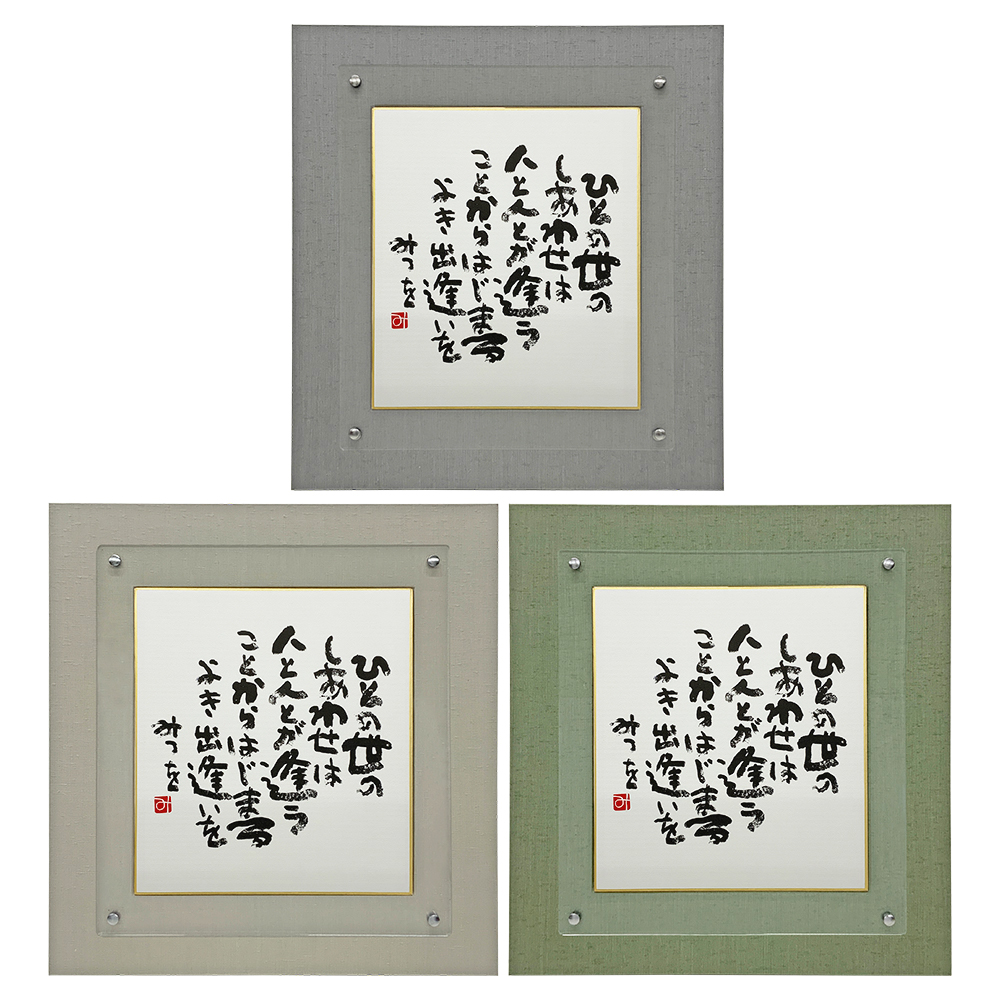 ひとの世の
しあわせは
人と人とが逢う
ことからはじまる
よき出逢いを
みつを
み
ひとの世の
しあわせは
人と人とが逢う
ことからはじまる
よき出逢いを
みつを
み
ひとの世の
しあわせは
人と人とが逢う
ことからはじまる
よき出逢いを
みつを
み